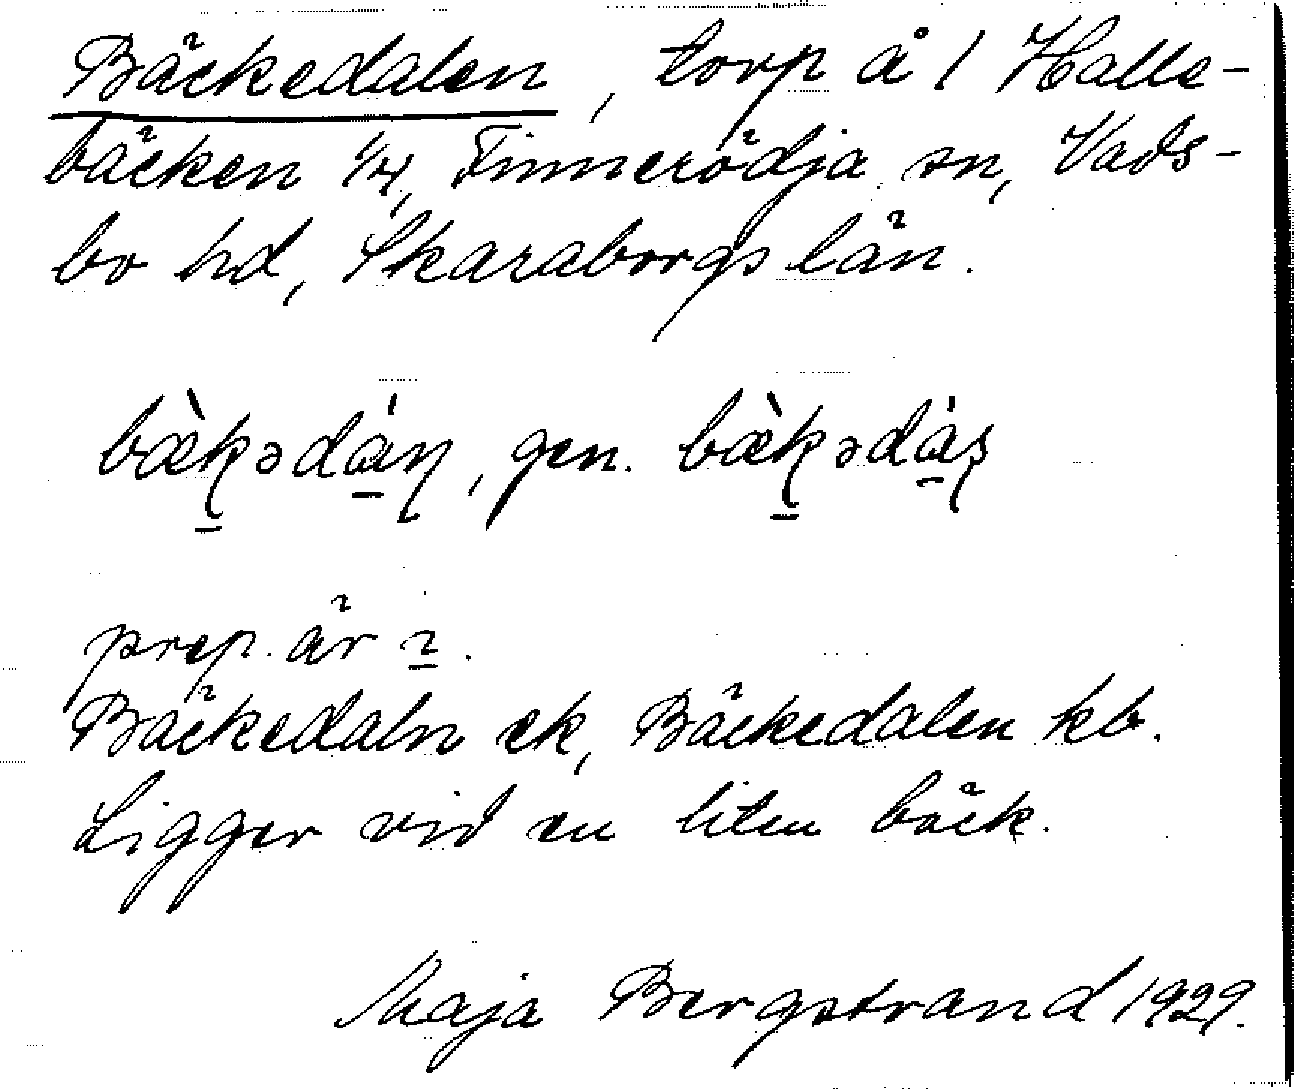 Bäckedalen, torp å 1 Halle-
bäcken 1/4, Finnerödja sn, Vads-
bo hd, Skaraborgs län.
bæ̀kədán, gen. bæ̀kədás
prep. är ı.
Bäckedaln ek, Bäckedalen kb.
Ligger vid en liten bäck.
Maja Bergstrand 1929.